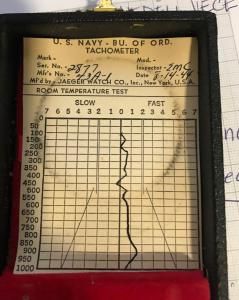 U. S. NAVY - BU. OF ORD.
TACHOMETER
Mark - Mod. -
Ser. No. - 2877 Inspector -
Mfr's No. - Date 8-14-44
M'f'd by - JAEGER WATCH CO., Inc., New York, U.S.A.
ROOM TEMPERATURE TEST
SLOW FAST
7 6 5 4 3 2 1 0 1 2 3 4 5 6 7
50
100
150
200
250
300
350
400
450
500
550
600
650
700
750
800
850
900
950
1000